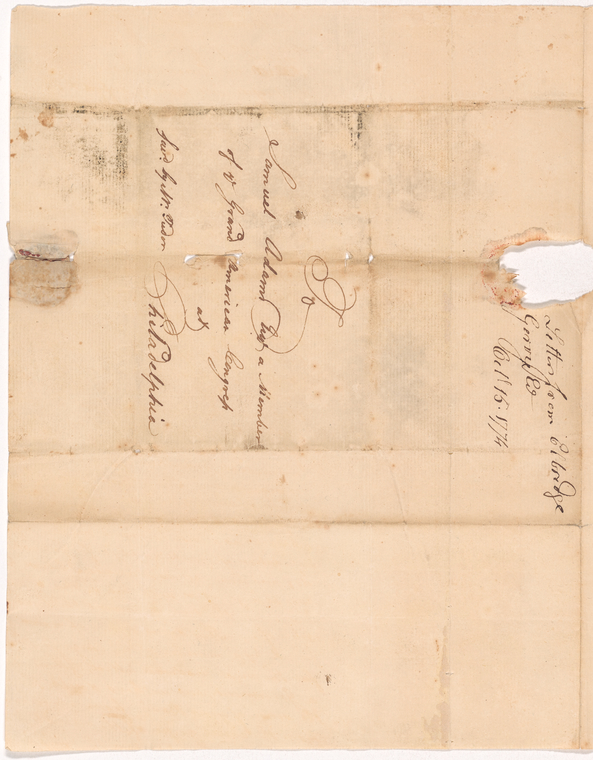 To
Samuel Adams Esqr. a Member
of ye Grand American Congress
at
Philadelphia
favd. by Mr. Tudor
Letter from Elbridge
Gerry Esqr
Octr 15. 1774